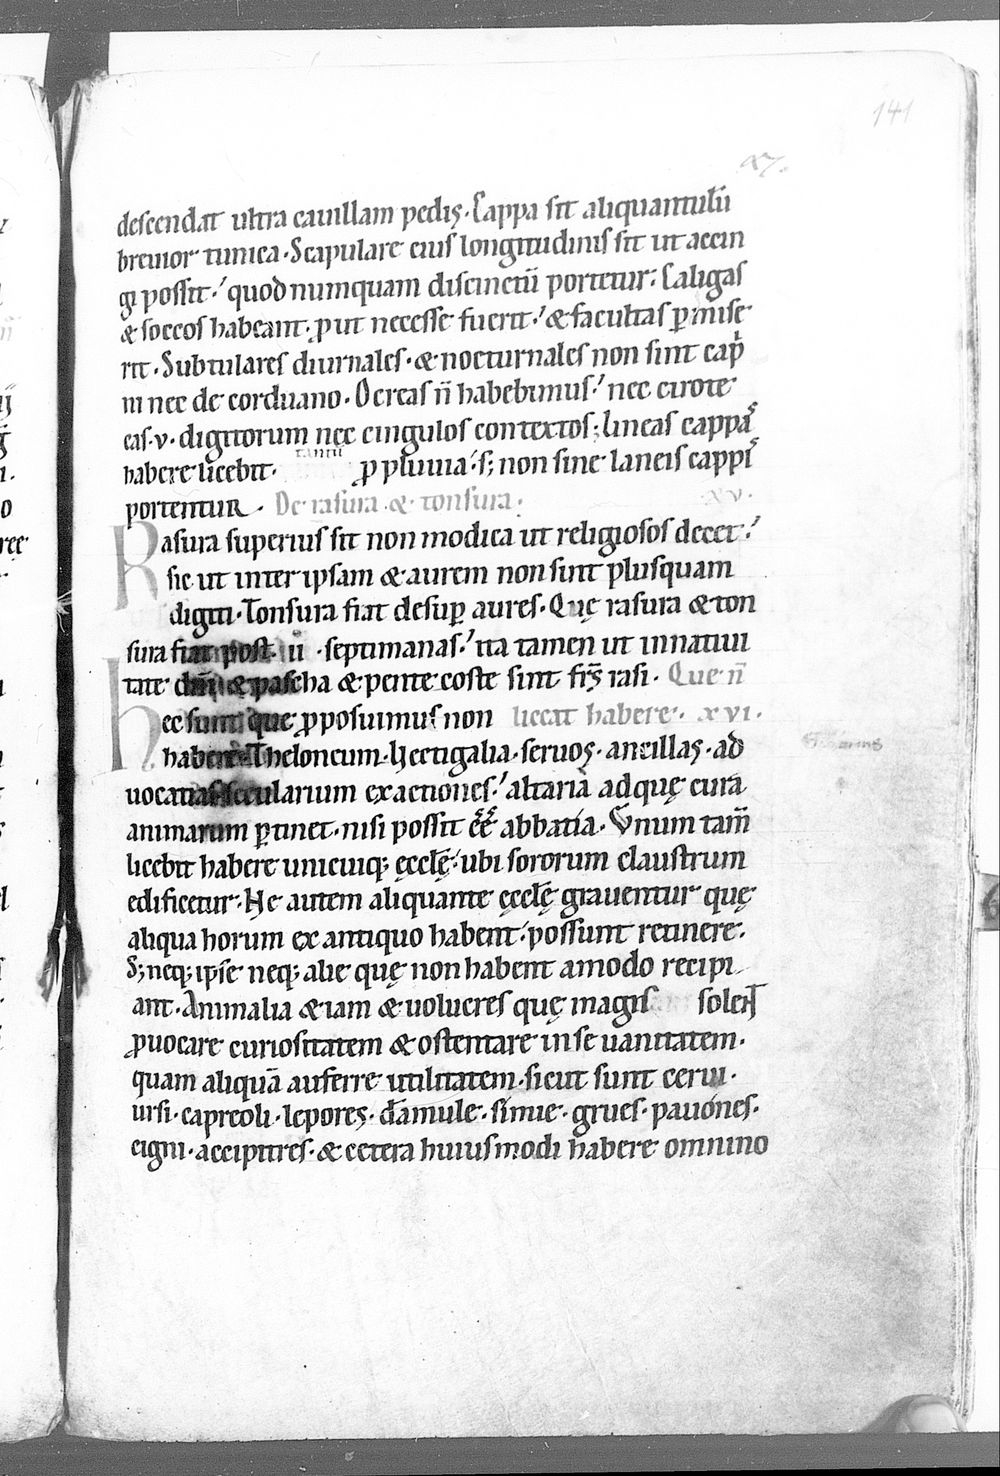 141
descendat ultra cauillam pedis. Cappa sit aliquantulū
breuior tunica. Scapulare eius longitudinis sit ut accin
gi possit. quod numquam discinctū portetur. Caligas
& soccos habeant. ꝓut necesse fuerit. & facultas ꝑmise
rit. Subtulares diurnales. & nocturnales non sint cap̄
ni nec de corduano. Ocreas n̄ habebimus. nec cirote
cas .v. digitorum nec cingulos contextos; lineas cappas
habere licebit. tantū ꝓ pluuia. s; non sine laneis cappis
portentur. De rasura & tonsura. xv.
Rasura superius sit non modica ut religiosos decet.
sic ut inter ipsam & aurem non sint plusquam
digiti. Tonsura fiat desuꝑ aures. Quę rasura & ton
sura fiat post .iii. septimanas. ita tamen ut in natiui
tate dn̄i & pascha & pentecoste sint frs̄ rasi. Que n̄
hec sunt que ꝓposuimus non liceat habere. xvi.
habere. Theloneum. Uectigalia. seruos. ancillas. ad
uocatias secularium exactiones. altaria ad quę cura
animarum ꝑtinet. nisi possit ēē abbatia. Vnum tam̄
licebit habere unicuiq; ęcclę̄. ubi sororum claustrum
edificetur. Ne autem aliquante ęcclę̄ grauentur quę
aliqua horum ex antiquo habent. possunt retinere.
S; neq; ipse neq; alie quę non habent amodo recipi
ant. Animalia & iam & uolucres quę magis solent
ꝓuocare curiositatem & ostentare in se uanitatem.
quam aliquā auferre utilitatem. sicut sunt cerui.
ursi. capreoli. lepores. damule. simie. grues. pauones.
cigni. accipitres. & cetera huiusmodi habere omnino